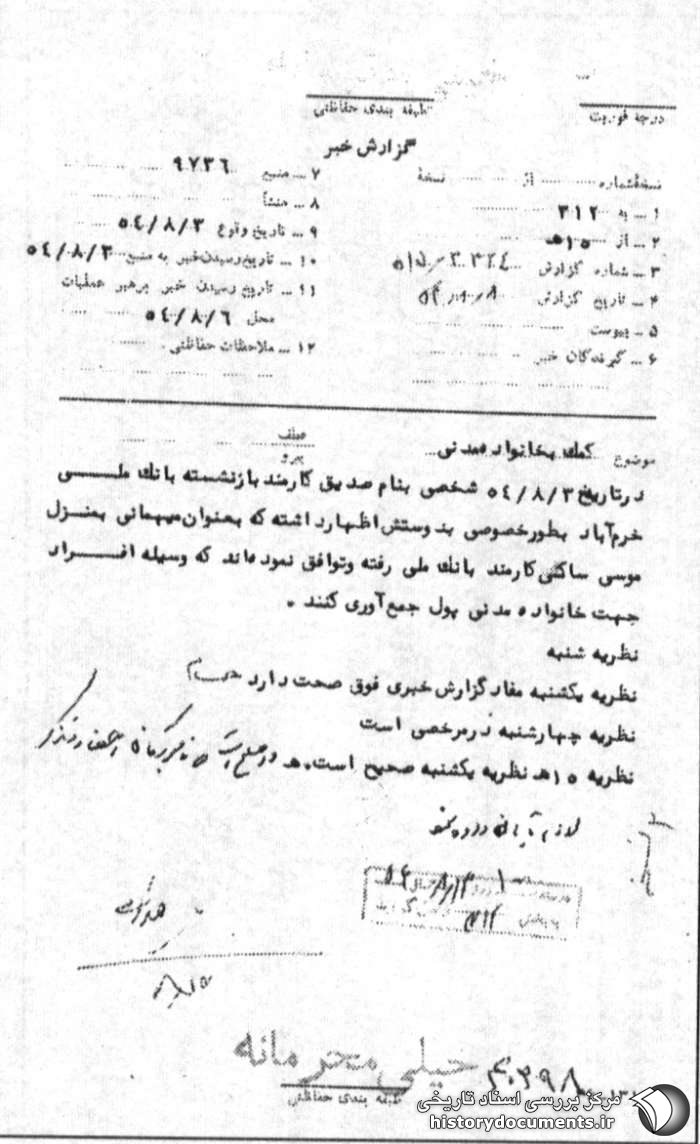 درجه فوریت
طبقه بندی حفاظتی
گزارش خبر
نسخهٔ شماره ........ از ........ نسخهٔ
۱ – به ۳۱۲
۲ – از ۱۵ هـ
۳ – شماره گزارش
۴ – تاریخ گزارش
۵ – پیوست
۶ – گیرندگان خبر
۷ – منبع ۹۷۳۶
۸ – منشأ
۹ – تاریخ وقوع ۵۴/۸/۳
۱۰ – تاریخ رسیدن خبر به منبع ۵۴/۸/۳
۱۱ – تاریخ رسیدن خبر برهبر عملیات
محل ۵۴/۸/۶
۱۲ – ملاحظات حفاظتی
موضوع کمک بخانواده مدنی
عطف
پیرو
در تاریخ ۵۴/۸/۳ شخصی بنام صدیق کارمند بازنشسته بانک ملی
خرم‌آباد بطور خصوصی بدوستش اظهار داشته که بعنوان میهمانی بمنزل
موسی ساکی کارمند بانک ملی رفته وتوافق نموده‌اند که وسیله افراد
جهت خانواده مدنی پول جمع‌آوری کنند .
نظریه شنبه
نظریه یکشنبه مفاد گزارش خبری فوق صحت دارد
نظریه چهارشنبه در مرخصی است
نظریه ۱۵هـ نظریه یکشنبه صحیح است. هـ
خیلی محرمانه
طبقه بندی حفاظتی
مرکز بررسی اسناد تاریخی
historydocuments.ir